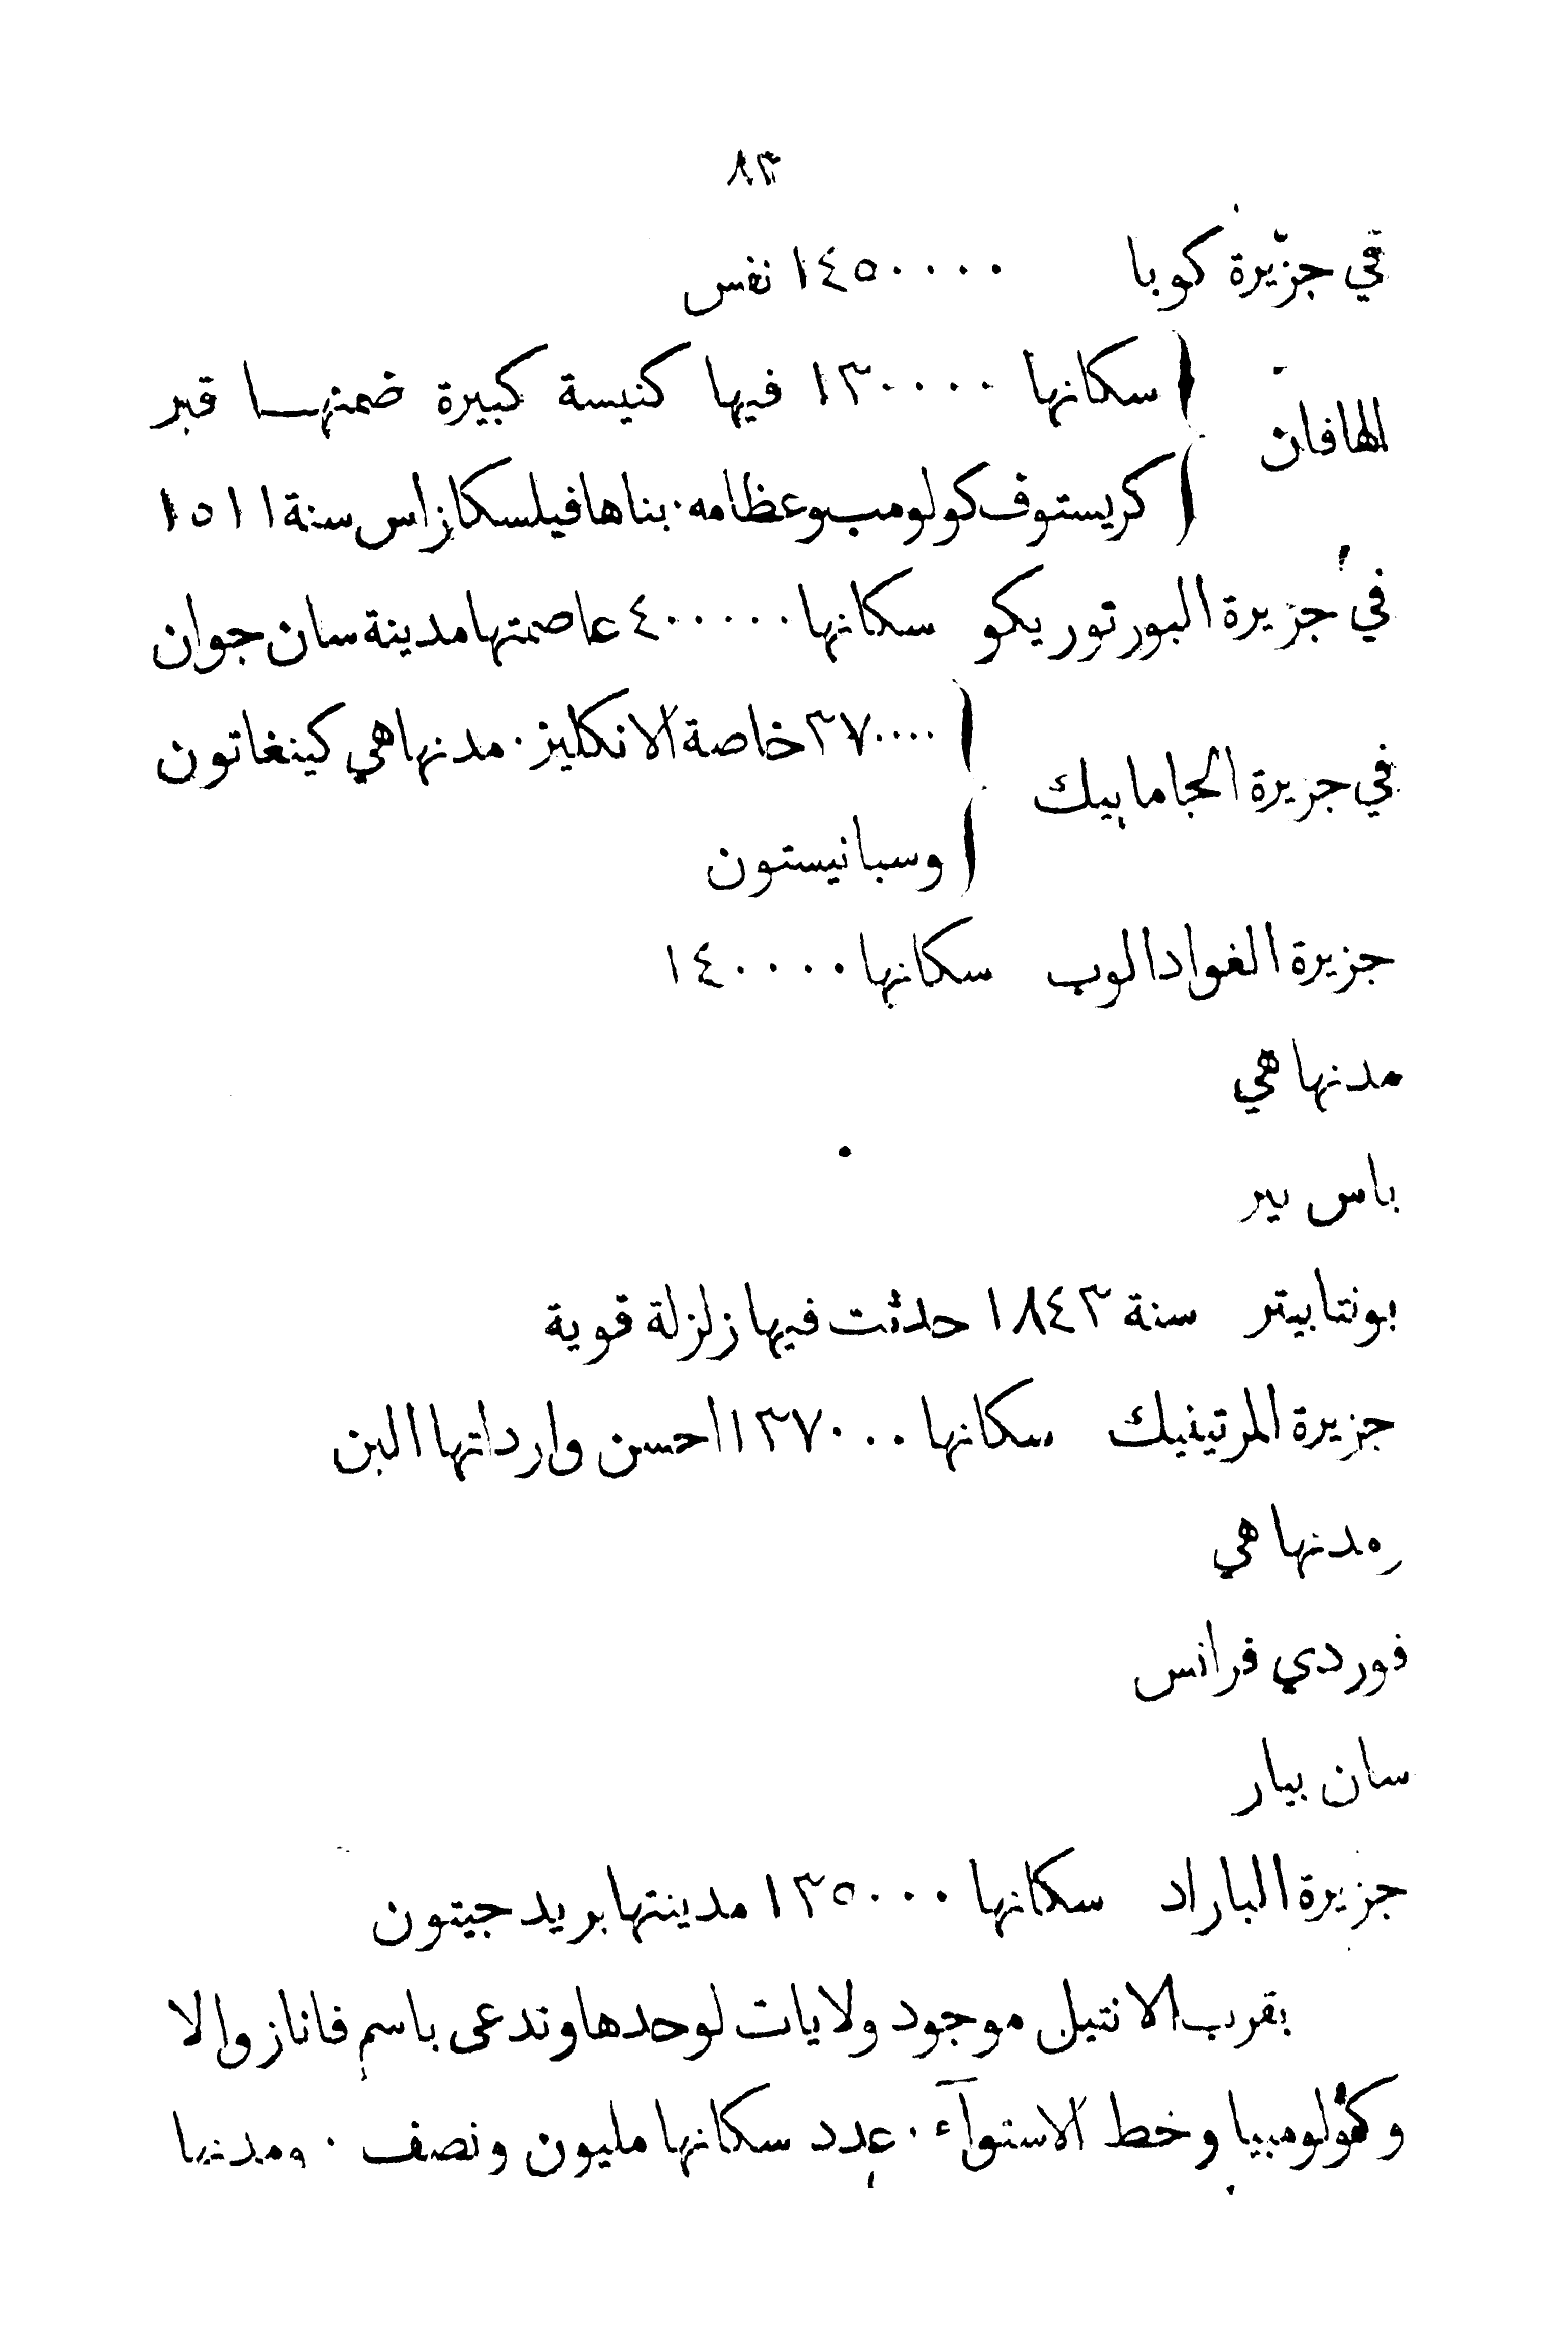 ٨٣
في جزيرة كوبا ١٤٥٠٠٠٠ نفس
الهافان
سكانها ١٣٠٠٠٠ فيها كنيسة كبيرة ضمنها قبر
كريستوف كولومب وعظامه · بناها فيلسكازاس سنة ١٥١١
في جزيرة البورتوريكو سكانها ٤٠٠٠٠٠ عاصمتها مدينة سان جوان
في جزيرة الجاماييك
٣٧٠٠٠٠ خاصة الانكليز · مدنها هي كينغاتون
وسبانيستون
جزيرة الغوادالوب سكانها ١٤٠٠٠٠
مدنها هي
باس تير
بونتابيتر سنة ١٨٤٣ حدثت فيها زلزلة قوية
جزيرة المرتينيك سكانها ١٣٧٠٠٠ احسن وارداتها البن
ومدنها هي
فوردي فرانس
سان بيار
جزيرة الباراد سكانها ١٣٥٠٠٠ مدينتها بريد جيتون
بقرب الانتيل موجود ولايات لوحدها وتدعى باسم فانازوالا
وكولومبيا وخط الاستوآء · عدد سكانها مليون ونصف · ومدنها